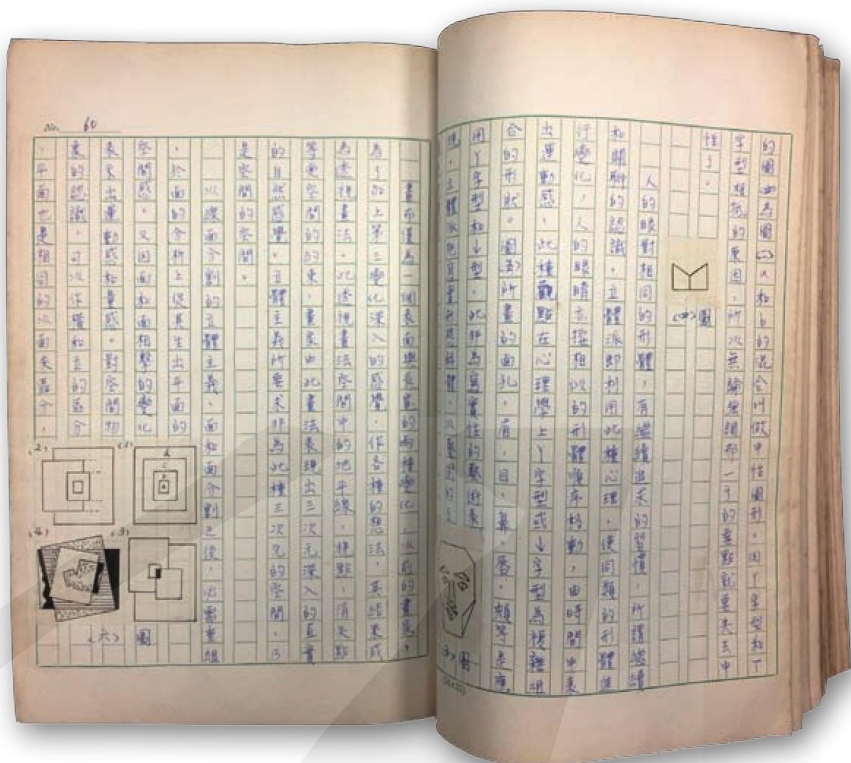 的圖㈣為圖㈡
字型類抗的原因，所以無論無視那一方的重點就要失去中
性了。
圖㈣
人的眼對相同的形體，有繼續追求的習慣，所謂繼續
和關聯的認識。立體派即利用此種心理，使同類的形體進
行變化，人的眼睛亦按相似的形體順序移動，由時間中表
出運動感，此種觀點在心理學上丫字型或个字型為複雜明
合的形狀。圖㈤所畫的面孔，眉、目、鼻、唇、頰等是應
用丫字型和个型，此非為寫實性的藝術表
現，立體
圖
No. 60
畫布僅為一個表面與長寬的兩種變化，以前的畫家，
為了加上第三變化深入的感覺，作各種的想法，其結果成
為透視畫法。此透視畫法空間中的地平線，視點，消失點
等更空間的約束，畫家由此畫法表現出三次元深入的真實
的自然感覺。立體主義所要求非為此種三次元的空間，乃
是空間的空間。
以深面分割的立體主義，面和面分割之後，必需重組
，於面的分析上促其生出平面的
空間感。又因面和面相擊的變化
表示出運動感和量感。對空間物
象的認識，可以作橫和直的區分
，平面也是相同的以面來區分，
(1)
(2)
(3)
(4)
圖(六)